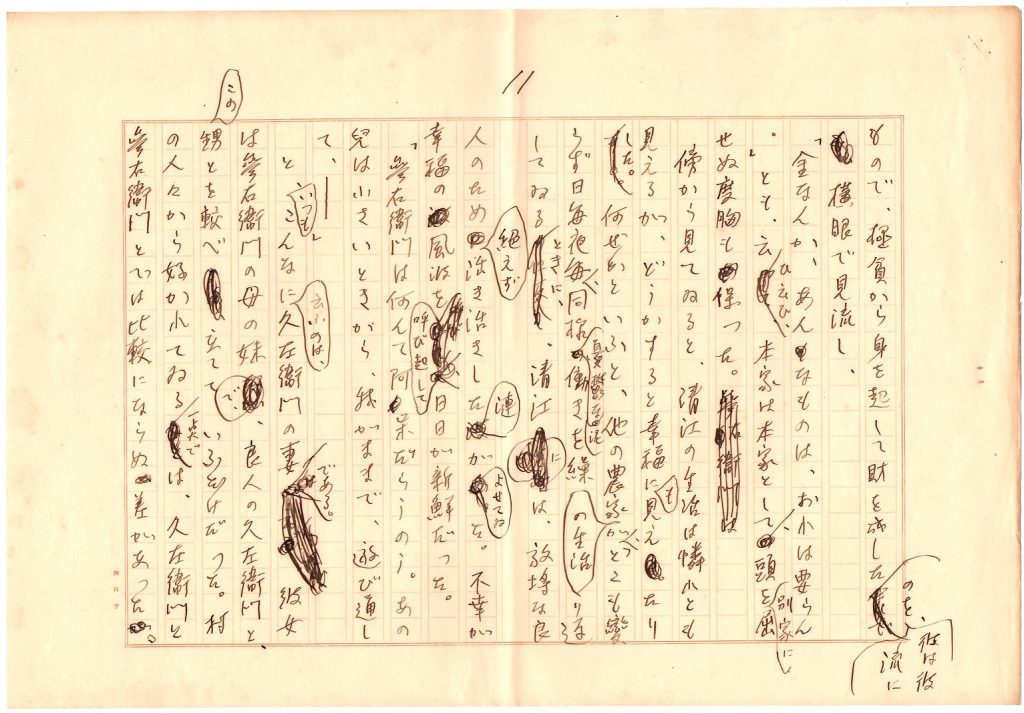 11
もので、極貧から身を起して財を成した
のを、彼は彼流に
横眼で見流し、
「金なんか、あんなものは、おれは要らん
。」とも、云ひ云ひ、本家は本家として、別家に頭を屈
せぬ度胸も保つた。
傍から見てゐると、清江の生活は憐れとも
見えるが、どうかすると幸福にも見えたり
した。何ぜかといふと、他の農家のどこも變
らず日毎夜毎同様、憂鬱な
働きの生活を繰り返
してゐるときに、清江には、放埓な良
人のため絶えず活き活きした漣がよせてゐた。不幸が
幸福の風波を呼び起して日日が新鮮だつた。
「參右衞門は何んて阿呆だらうのう。あの
兒は小さいときから、我がままで、遊び通し
て、――」
と、いつもこんなに云ふのは、久左衞門の妻である。彼女
は參右衞門の母の妹で、良人の久左衞門と、
この甥とを較べ立てていふわけだつた。村
の人々から好かれてゐる點では、久左衞門と
參右衞門とでは比較にならぬ差があつた。